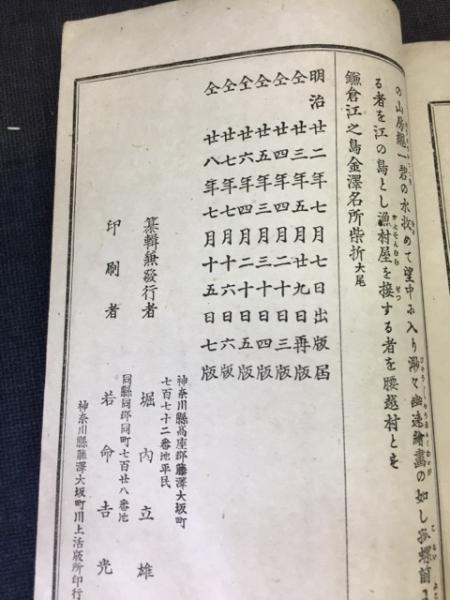 の山房飄一碧の水收めて望中に入り渺々幽遠繪畫の如し
る者を江の島とし漁村屋を接する者を腰越村とを
鎌倉江之島金澤名所栞折大尾
明治廿二年七月七日出版届
仝廿三年五月廿九日再版
仝廿四年三月二十日三版
仝廿五年三月二十日四版
仝廿六年四月二十日五版
仝廿七年七月十六日六版
仝廿八年七月十五日七版
神奈川縣高座郡藤澤大坂町
七百七十二番地平民
纂輯兼發行者 堀内立雄
同縣同郡同町七百廿八番地
印刷者 若命吉光
神奈川縣藤澤大坂町川上活版所印行